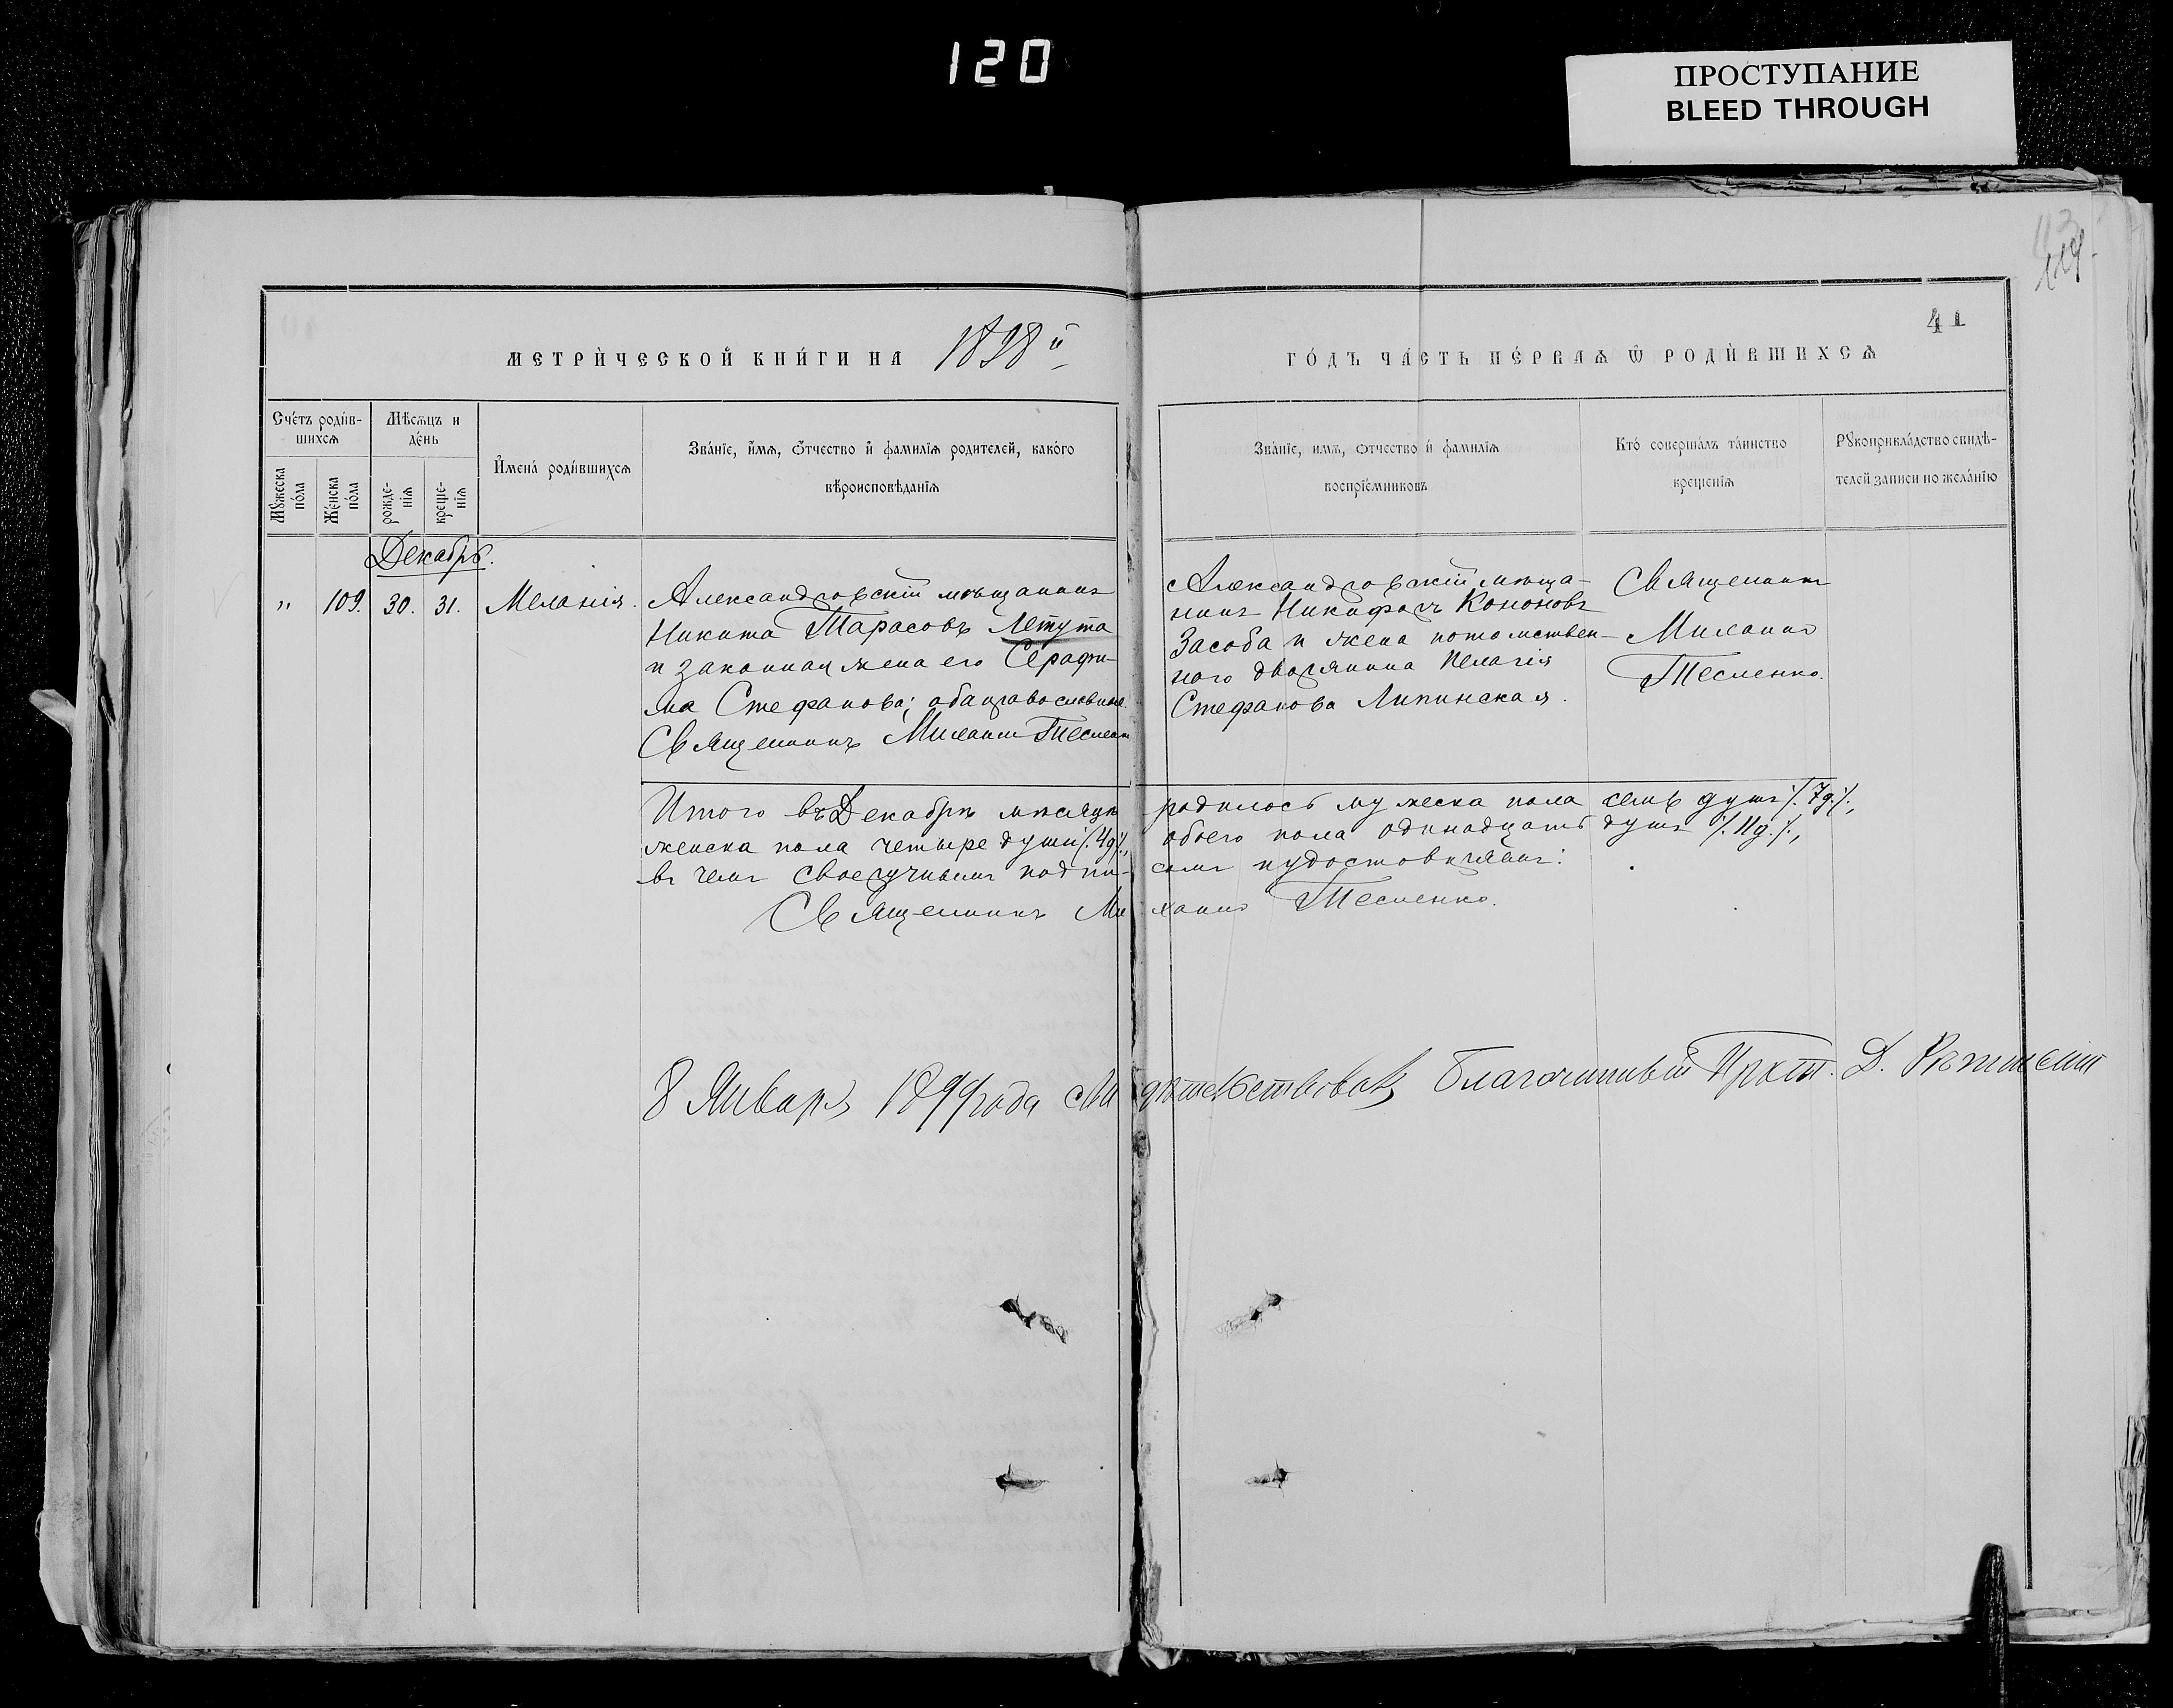 120
ПРОСТУПАНИЕ
BLEED THROUGH
41
МЕТРИ́ЧЕСКОЙ КНИ́ГИ НА 1898 й
ГО́ДЪ ЧА́СТЬ ПЕ́РВАѦ Ѡ РОДИ́ВШИХСѦ
Сче́тъ роди́в-
шихсѧ
Мꙋжеска по́ла
Же́нска по́ла
Мѣсѧцъ и
де́нь
рожде-
нїѧ
креще-
нїѧ
И́мена́ роди́вшихсѧ
Зва́нїе, и́мѧ, ѻ́тчество и҆ фамилїѧ родителей, како́го
вѣроисповѣданїѧ
Зва́нїе, имѧ, ѻтчество и҆ фамилїѧ
воспрїе́мниковъ
Кто́ соверша́лъ та́инство
креще́нїѧ
Рꙋкоприкла́дство свидѣ-
телей записи по жела́нїю
Декабрь.
" 109. 30. 31. Меланія.
Александровскій мѣщанинъ
Никита Тарасовъ Летута
и законная жена его Серафи-
ма Стефанова; оба православные.
Священникъ Михаилъ Тесленко
Александровскій мѣща-
нинъ Никифоръ Кононовъ
Засоба и жена потомствен-
ного дворянина Пелагія
Стефанова Липинская.
Священникъ
Михаилъ
Тесленко.
Итого въ Декабрѣ мѣсяцѣ родилось мужеска пола семь душъ /. 7 д. /.,
женска пола четыре души /. 4 д. /., обоего пола одинадцать душъ /. 11 д. /.,
въ чемъ своеручнымъ подпи- сомъ и удостовѣряемъ:
Священникъ Михаилъ Тесленко.
8 Января 1899 года свидѣтельствовалъ Благочинный Прот. Д.